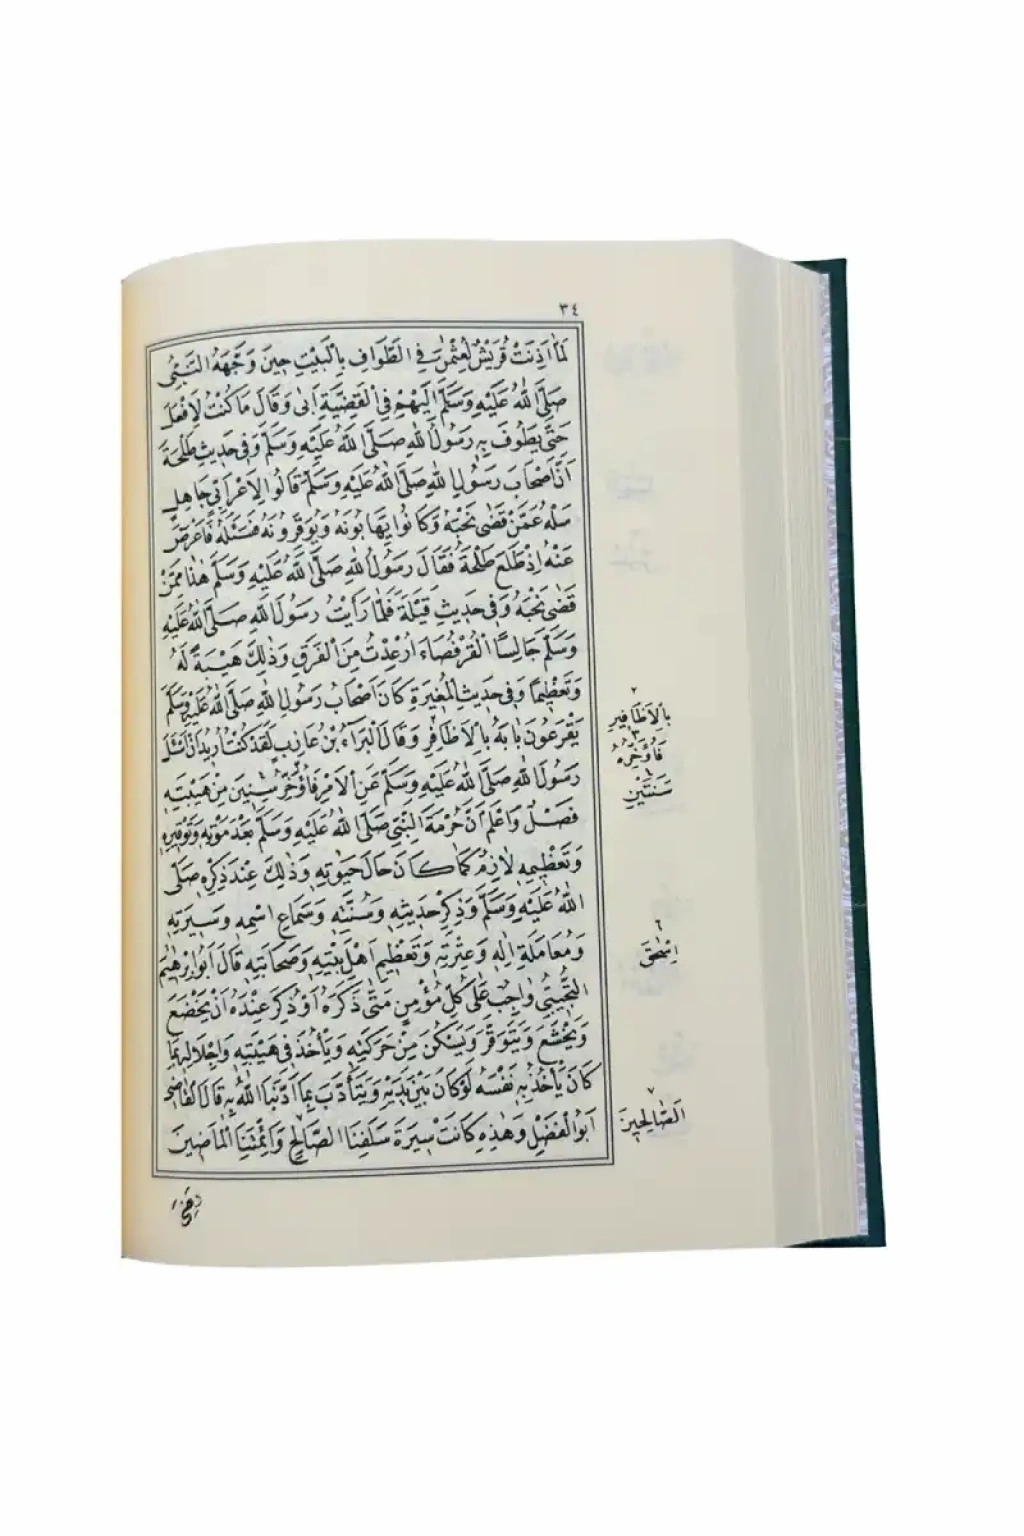 ٣٤
لَمَّا اَذِنَتْ قُرَيْشٌ لِعُثْمٰنَ فِي الطَّوَافِ بِالْبَيْتِ حِينَ وَجَّهَهُ النَّبِيُّ
صَلَّى اللهُ عَلَيْهِ وَسَلَّمَ اِلَيْهِمْ فِي الْقَضِيَّةِ اَبٰى وَقَالَ مَا كُنْتُ لِاَفْعَلَ
حَتّٰى يَطُوفَ بِهِ رَسُولُ اللهِ صَلَّى اللهُ عَلَيْهِ وَسَلَّمَ وَفِي حَدِيثِ طَلْحَةَ
اَنَّ اَصْحَابَ رَسُولِ اللهِ صَلَّى اللهُ عَلَيْهِ وَسَلَّمَ قَالُوا لِاَعْرَابِيٍّ جَاهِلٍ
سَلْهُ عَمَّنْ قَضٰى نَحْبَهُ وَكَانُوا يَهَابُونَهُ وَيُوَقِّرُونَهُ فَسَئَلَهُ فَاَعْرَضَ
عَنْهُ اِذْ طَلَعَ طَلْحَةُ فَقَالَ رَسُولُ اللهِ صَلَّى اللهُ عَلَيْهِ وَسَلَّمَ هٰذَا مِمَّنْ
قَضٰى نَحْبَهُ وَفِي حَدِيثِ قَيْلَةَ فَلَمَّا رَاَيْتُ رَسُولَ اللهِ صَلَّى اللهُ عَلَيْهِ
وَسَلَّمَ جَالِسًا الْقُرْفُصَاءَ اُرْعِدْتُ مِنَ الْفَرَقِ وَذٰلِكَ هَيْبَةً لَهُ
وَتَعْظِيمًا وَفِي حَدِيثِ الْمُغِيرَةِ كَانَ اَصْحَابُ رَسُولِ اللهِ صَلَّى اللهُ عَلَيْهِ وَسَلَّمَ
يَقْرَعُونَ بَابَهُ بِالْاَظَافِرِ وَقَالَ الْبَرَاءُ بْنُ عَازِبٍ لَقَدْ كُنْتُ اُرِيدُ اَنْ اَسْئَلَ
رَسُولَ اللهِ صَلَّى اللهُ عَلَيْهِ وَسَلَّمَ عَنِ الْاَمْرِ فَاُؤَخِّرُ سِنِينَ مِنْ هَيْبَتِهِ
فَصْلٌ وَاعْلَمْ اَنَّ حُرْمَةَ النَّبِيِّ صَلَّى اللهُ عَلَيْهِ وَسَلَّمَ بَعْدَ مَوْتِهِ وَتَوْقِيرَهُ
وَتَعْظِيمَهُ لَازِمٌ كَمَا كَانَ حَالَ حَيٰوتِهِ وَذٰلِكَ عِنْدَ ذِكْرِهِ صَلَّى
اللهُ عَلَيْهِ وَسَلَّمَ وَذِكْرِ حَدِيثِهِ وَسُنَّتِهِ وَسَمَاعِ اسْمِهِ وَسِيرَتِهِ
وَمُعَامَلَةِ اٰلِهِ وَعِتْرَتِهِ وَتَعْظِيمِ اَهْلِ بَيْتِهِ وَصَحَابَتِهِ قَالَ اَبُو اِبْرٰهِيمَ
التُّجِيبِيُّ وَاجِبٌ عَلٰى كُلِّ مُؤْمِنٍ مَتٰى ذَكَرَهُ اَوْ ذُكِرَ عِنْدَهُ اَنْ يَخْضَعَ
وَيَخْشَعَ وَيَتَوَقَّرَ وَيَسْكُنَ مِنْ حَرَكَتِهِ وَيَأْخُذَ فِي هَيْبَتِهِ وَاِجْلَالِهِ بِمَا
كَانَ يَأْخُذُ بِهِ نَفْسَهُ لَوْ كَانَ بَيْنَ يَدَيْهِ وَيَتَأَدَّبَ بِمَا اَدَّبَنَا اللهُ بِهِ قَالَ الْقَاضِي
اَبُو الْفَضْلِ وَهٰذِهِ كَانَتْ سِيرَةَ سَلَفِنَا الصَّالِحِ وَاَئِمَّتِنَا الْمَاضِينَ
٢
بِالْاَظَافِيرِ
٣
فَاُؤَخِّرُهُ
سَنَتَيْنِ
٦
اِسْحٰقَ
٧
الصَّالِحِينَ